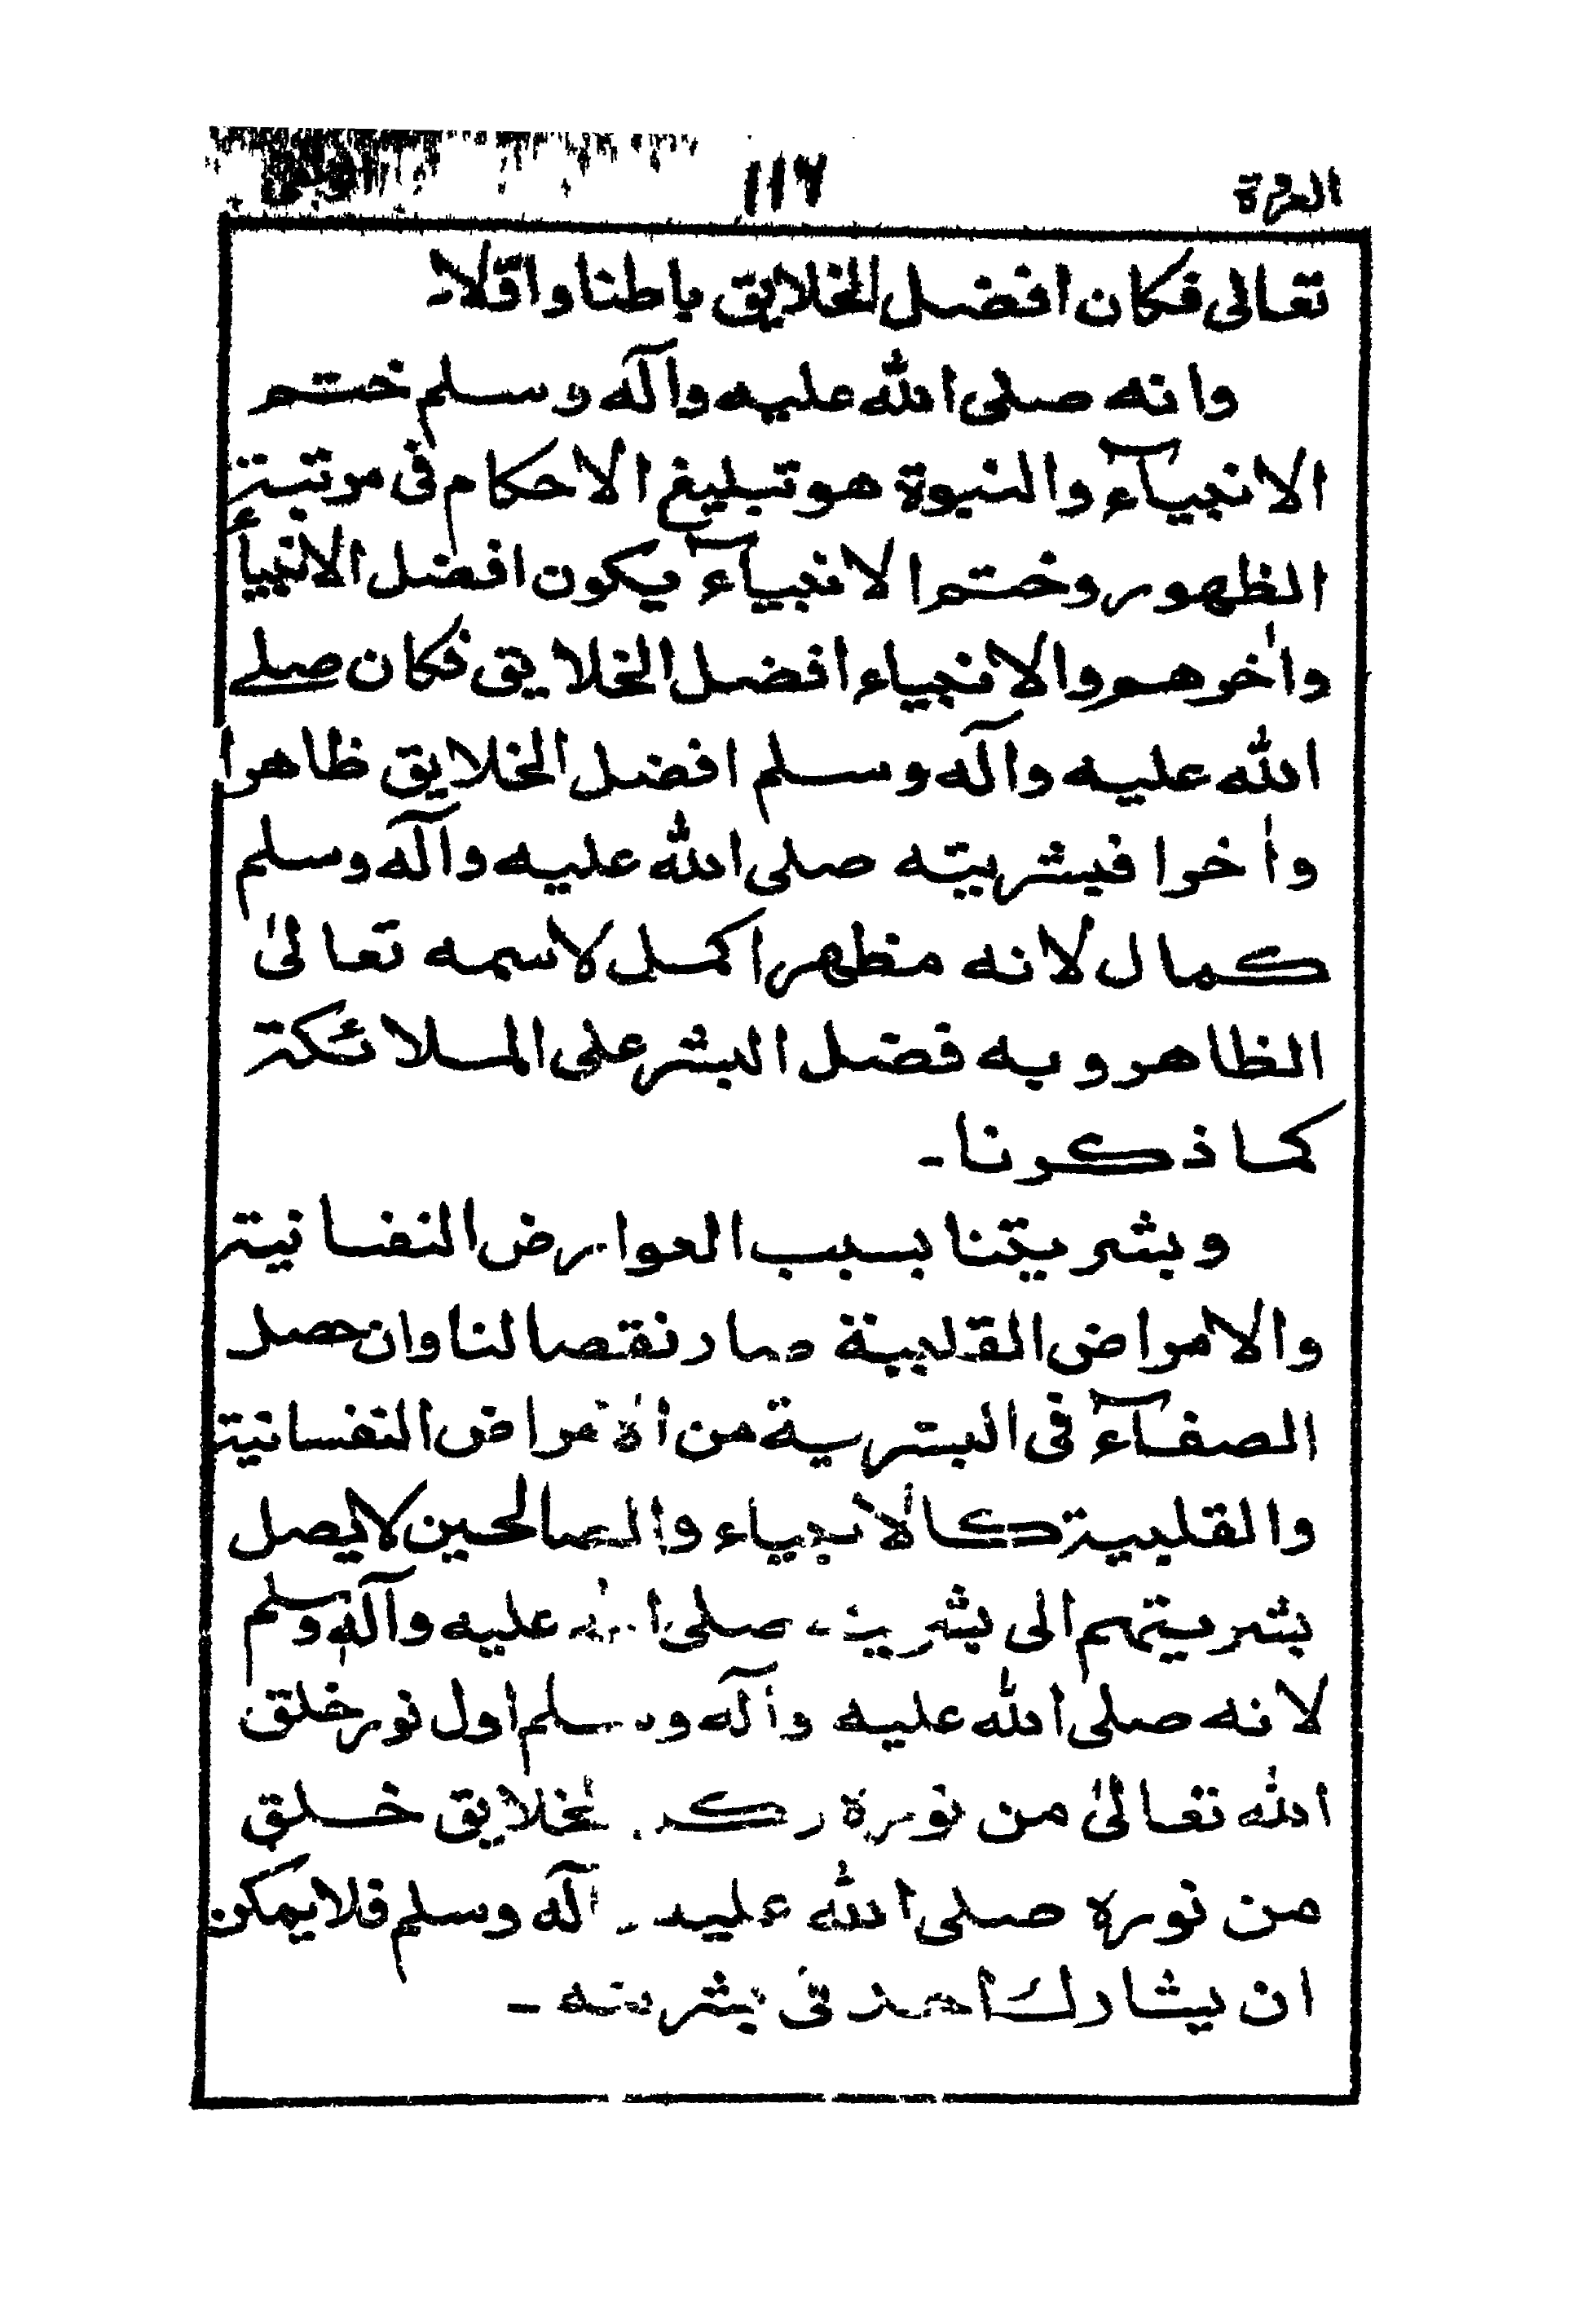 العرة ١١٦
تعالى فكان افضل الخلايق باطنا واوّلا۔
وانه صلى الله عليه وآله وسلم ختم
الانبيآء والنبوة هو تبليغ الاحكام فى مرتبة
الظهور وختم الانبيآء يكون افضل الانبيأ
واٰخرهم والانبياء افضل الخلايق فكان صلے
الله عليه وآله وسلم افضل الخلايق ظاهرا
واٰخرا فبشريته صلى الله عليه وآله وسلم
كمال لانه مظهر اكمل لاسمه تعالىٰ
الظاهر وبه فضل البشر على الملائكة
كما ذكرنا۔
وبشريتنا بسبب العوارض النفسانية
والامراض القلبية صار نقصا لنا وان حصل
الصفآء فى البشرية من الامراض النفسانية
والقلبية كالانبياء والصالحين لا يصل
بشريتهم الى بشريته صلى الله عليه وآله وسلم
لانه صلى الله عليه وآله وسلم اول نور خلق
الله تعالىٰ من نوره الخلايق خلق
من نوره صلى الله عليه وآله وسلم فلا يمكن
ان يشارك احد فى بشريته۔